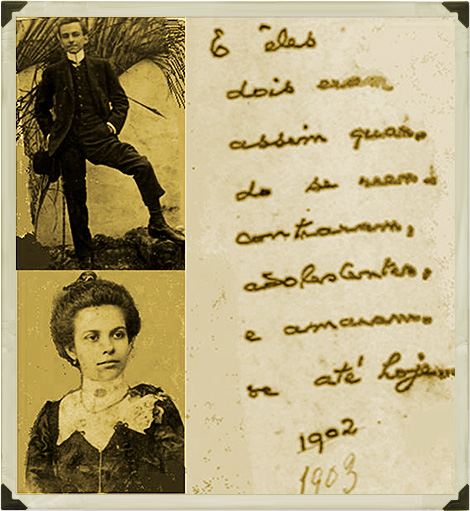 E êles
dois eram
assim quan-
do se reen-
contraram,
adolescentes,
e amaram-
se até hoje...
1902
1903